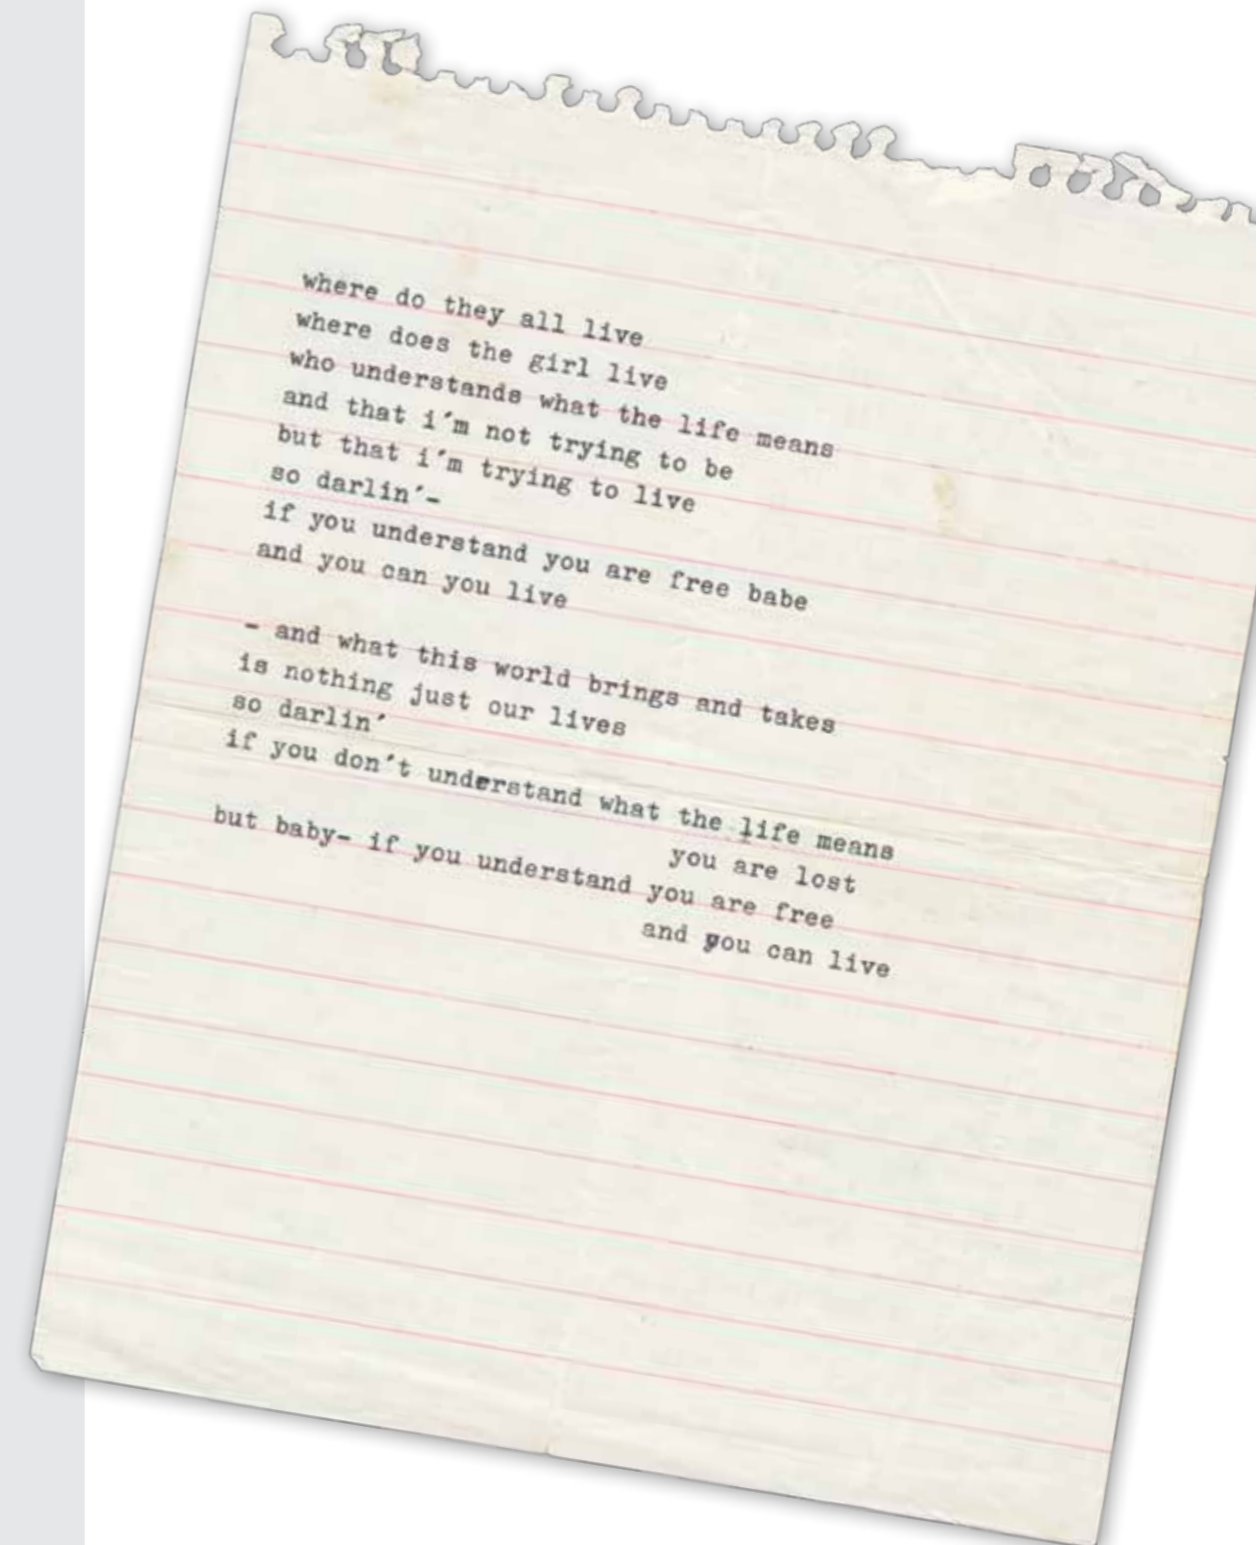 where do they all live
where does the girl live
who understands what the life means
and that i´m not trying to be
but that i´m trying to live
so darlin´-
if you understand you are free babe
and you can you live
- and what this world brings and takes
is nothing just our lives
so darlin´
if you don´t understand what the life means
you are lost
but baby- if you understand you are free
and you can live